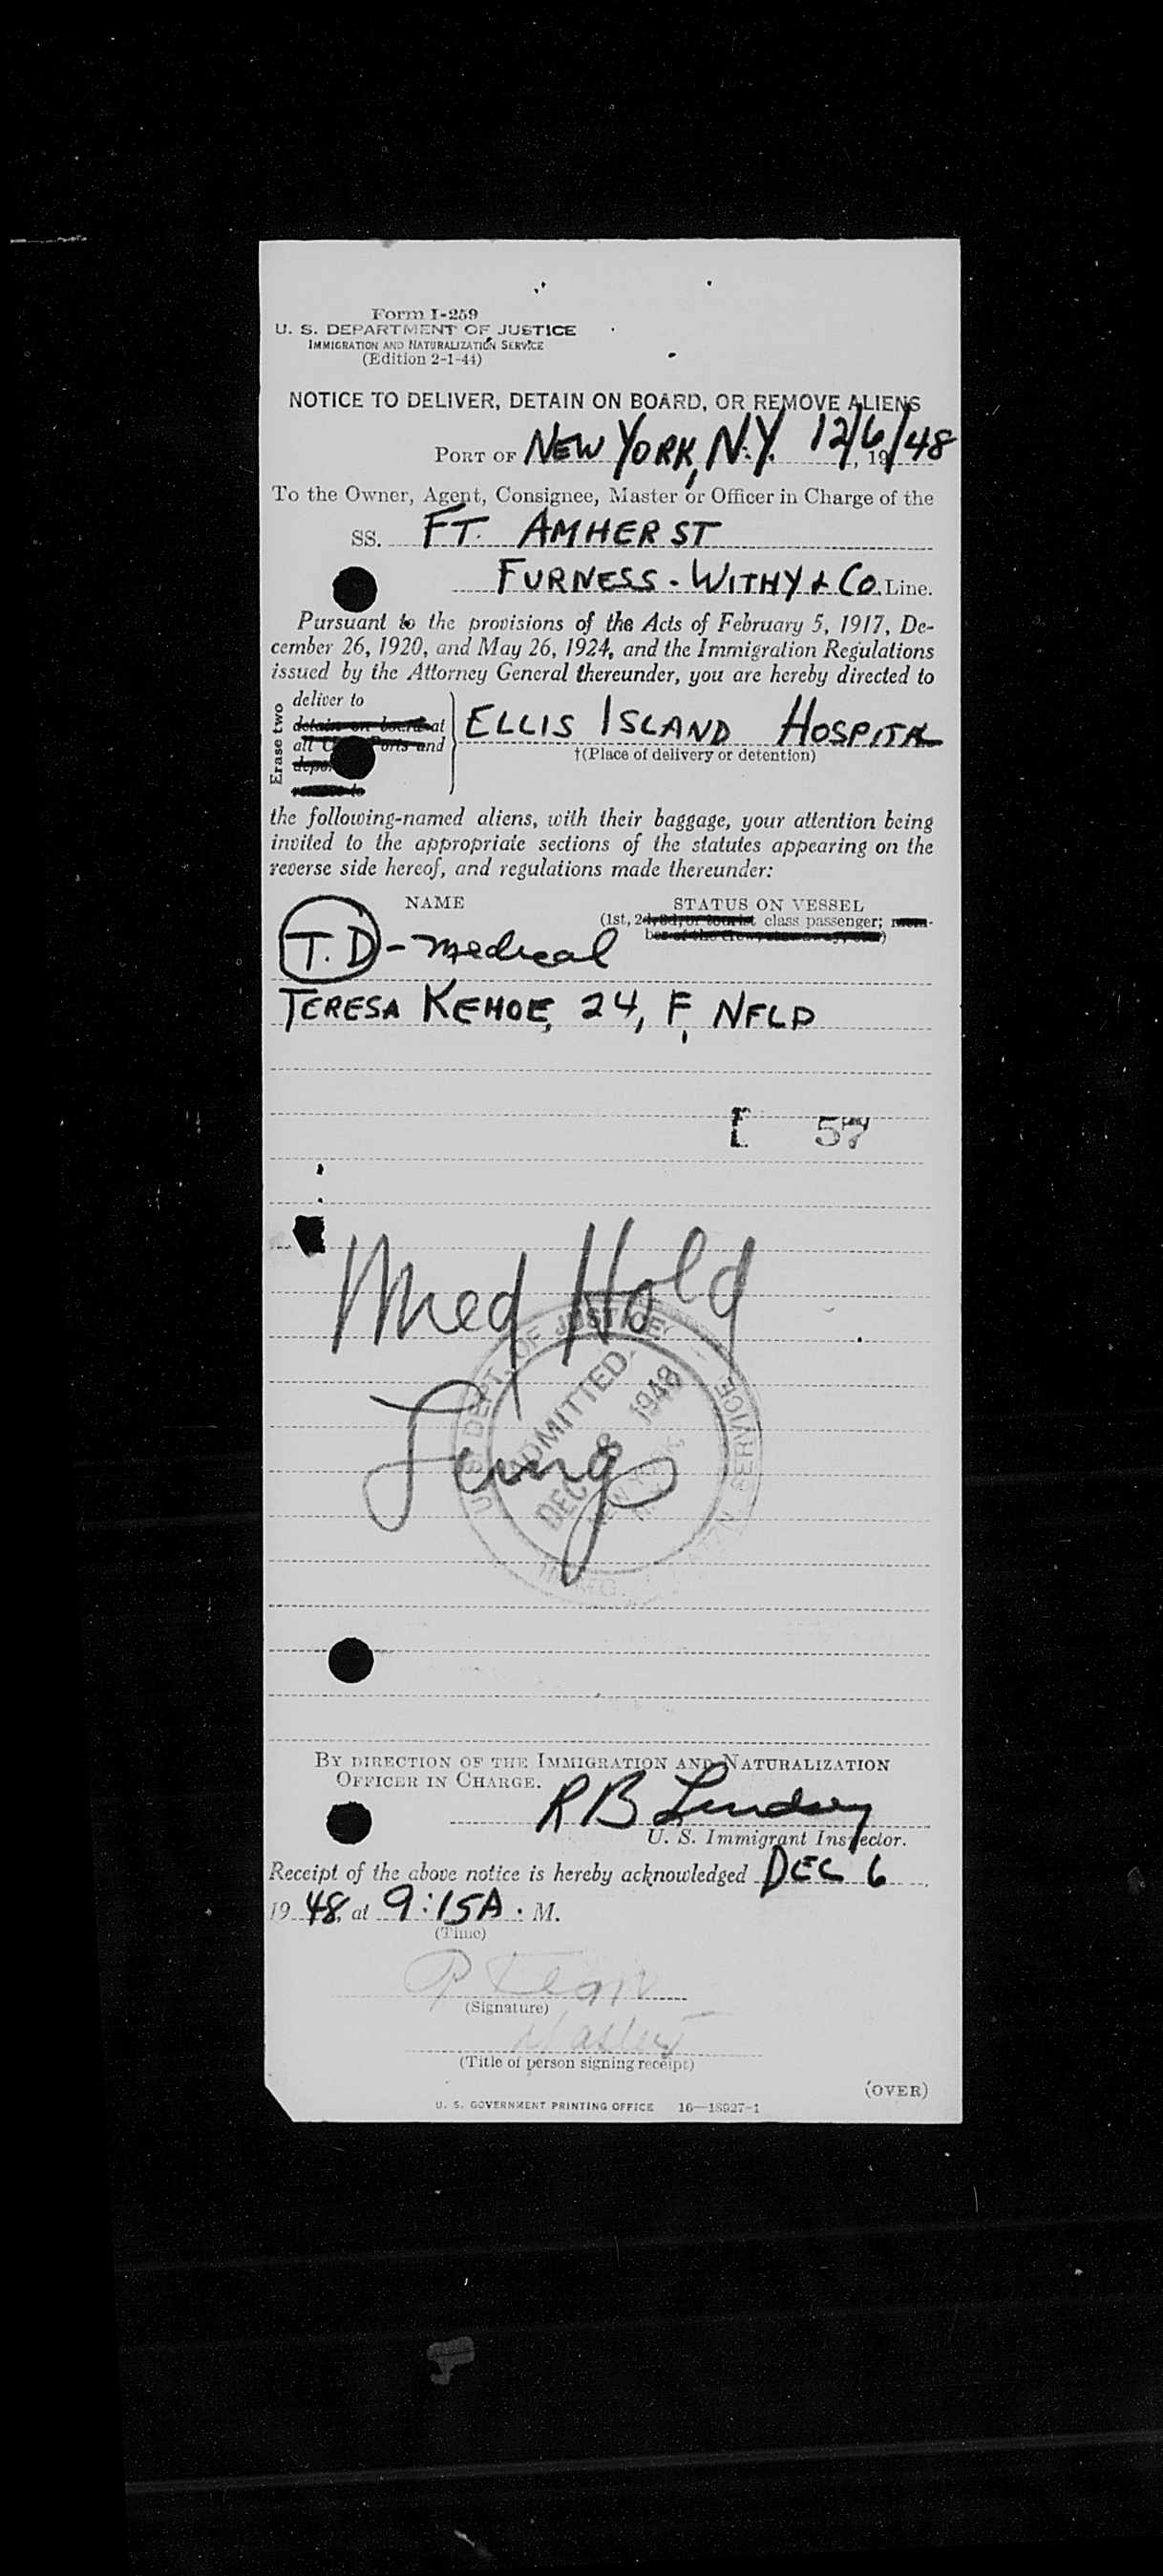 Form I-259
U. S. DEPARTMENT OF JUSTICE
IMMIGRATION AND NATURALIZATION SERVICE
(Edition 2-1-44)
NOTICE TO DELIVER, DETAIN ON BOARD, OR REMOVE ALIENS
PORT OF NEW YORK, N.Y. 12/6/48, 19
To the Owner, Agent, Consignee, Master or Officer in Charge of the
SS. FT. AMHERST
FURNESS - WITHY & CO. Line.
Pursuant to the provisions of the Acts of February 5, 1917, De-
cember 26, 1920, and May 26, 1924, and the Immigration Regulations
issued by the Attorney General thereunder, you are hereby directed to
Erase two
deliver to
detain on board at
all Ports and
ELLIS ISLAND HOSPITAL
†(Place of delivery or detention)
the following-named aliens, with their baggage, your attention being
invited to the appropriate sections of the statutes appearing on the
reverse side hereof, and regulations made thereunder:
NAME STATUS ON VESSEL
(1st, 2d, 3d, or tourist class passenger; mem-
ber of the crew, stowaway, etc.)
T.D - medical
TERESA KEHOE, 24, F, NFLD
57
Med Hold
Lung
U. S. DEPT. OF JUSTICE
ADMITTED
DEC 8 1948
NEW YORK
SERVICE
BY DIRECTION OF THE IMMIGRATION AND NATURALIZATION
OFFICER IN CHARGE.
R B Lindsay
U. S. Immigrant Inspector.
Receipt of the above notice is hereby acknowledged DEC 6
19 48, at 9:15 A. M.
(Time)
(Signature)
Master
(Title of person signing receipt)
(OVER)
U. S. GOVERNMENT PRINTING OFFICE 16—18927-1